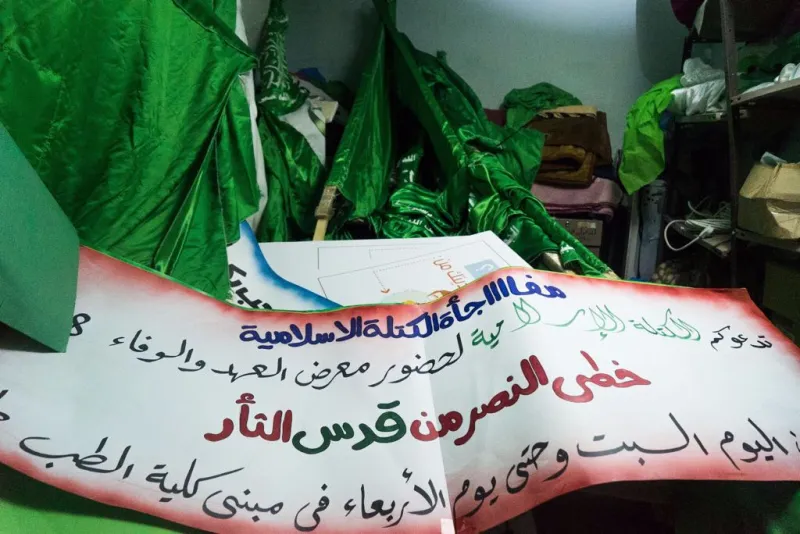 مفاااجأة الكتلة الاسلامية
تدعوكم الكتلة الإسلامية لحضور معرض العهد والوفاء 8
خطى النصر من قدس الثأر
اليوم السبت وحتى يوم الأربعاء في مبنى كلية الطب